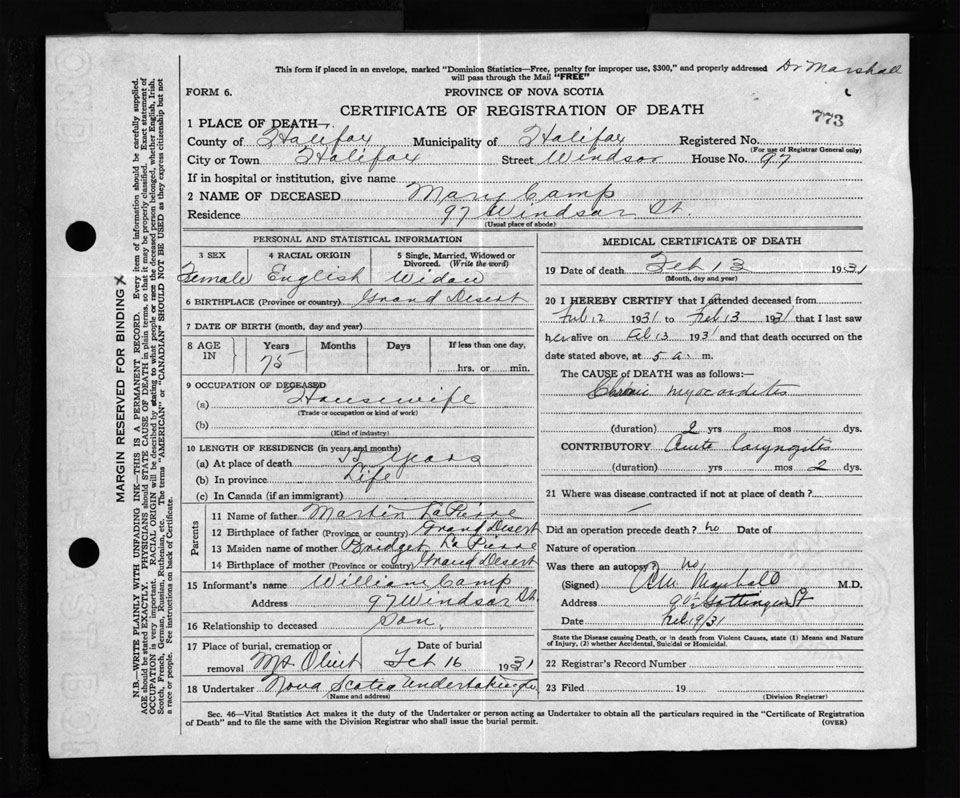 This form if placed in an envelope, marked "Dominion Statistics—Free, penalty for improper use, $300," and properly addressed Dr Marshall
will pass through the Mail "FREE"
FORM 6. PROVINCE OF NOVA SCOTIA
CERTIFICATE OF REGISTRATION OF DEATH 773
1 PLACE OF DEATH—
County of Halifax Municipality of Halifax Registered No.
(For use of Registrar General only)
City or Town Halifax Street Windsor House No. 97
If in hospital or institution, give name
2 NAME OF DECEASED Mary Camp
Residence 97 Windsor St.
(Usual place of abode)
PERSONAL AND STATISTICAL INFORMATION
3 SEX 4 RACIAL ORIGIN 5 Single, Married, Widowed or
Divorced. (Write the word)
Female English Widow
6 BIRTHPLACE (Province or country) Grand Desert
7 DATE OF BIRTH (month, day and year)
8 AGE IN Years Months Days If less than one day,
75 hrs. or min.
9 OCCUPATION OF DECEASED
(a) Housewife
(Trade or occupation or kind of work)
(b)
(Kind of industry)
10 LENGTH OF RESIDENCE (in years and months)
(a) At place of death years
(b) In province Life
(c) In Canada (if an immigrant)
Parents
11 Name of father Martin LaPierre
12 Birthplace of father (Province or country) Grand Desert
13 Maiden name of mother Bridget LaPierre
14 Birthplace of mother (Province or country) Grand Desert
15 Informant's name William Camp
Address 97 Windsor St.
16 Relationship to deceased Son.
17 Place of burial, cremation or Date of burial
removal Mt Olivet Feb 16 1931
18 Undertaker Nova Scotia Undertaking Co.
(Name and address)
MEDICAL CERTIFICATE OF DEATH
19 Date of death Feb 13 1931
(Month, day and year)
20 I HEREBY CERTIFY that I attended deceased from
Feb 12 1931 to Feb 13 1931 that I last saw
her alive on Feb 13 1931 and that death occurred on the
date stated above, at 5 a. m.
The CAUSE OF DEATH was as follows:—
Chronic myocarditis
(duration) 2 yrs mos dys.
CONTRIBUTORY Acute laryngitis
(duration) yrs mos 2 dys.
21 Where was disease contracted if not at place of death?
—
Did an operation precede death? no Date of
Nature of operation
Was there an autopsy? no
(Signed) Marshall M.D.
Address Gottingen St
Date Feb 19/31
State the Disease causing Death, or in death from Violent Causes, state (1) Means and Nature
of Injury, (2) whether Accidental, Suicidal or Homicidal.
22 Registrar's Record Number
23 Filed 19
(Division Registrar)
Sec. 46—Vital Statistics Act makes it the duty of the Undertaker or person acting as Undertaker to obtain all the particulars required in the "Certificate of Registration
of Death" and to file the same with the Division Registrar who shall issue the burial permit. (OVER)
MARGIN RESERVED FOR BINDING X
N.B.—WRITE PLAINLY WITH UNFADING INK—THIS IS A PERMANENT RECORD. Every item of information should be carefully supplied.
AGE should be stated EXACTLY. PHYSICIANS should STATE CAUSE OF DEATH in plain terms, so that it may be properly classified. Exact statement of
OCCUPATION is very important. RACIAL ORIGIN will be described by stating to what people or race the deceased person belonged, whether English, Irish,
Scotch, French, German, Russian, Ruthenian, etc. The terms "AMERICAN" or "CANADIAN" SHOULD NOT BE USED as they express citizenship but not
a race or people. See instructions on back of Certificate.